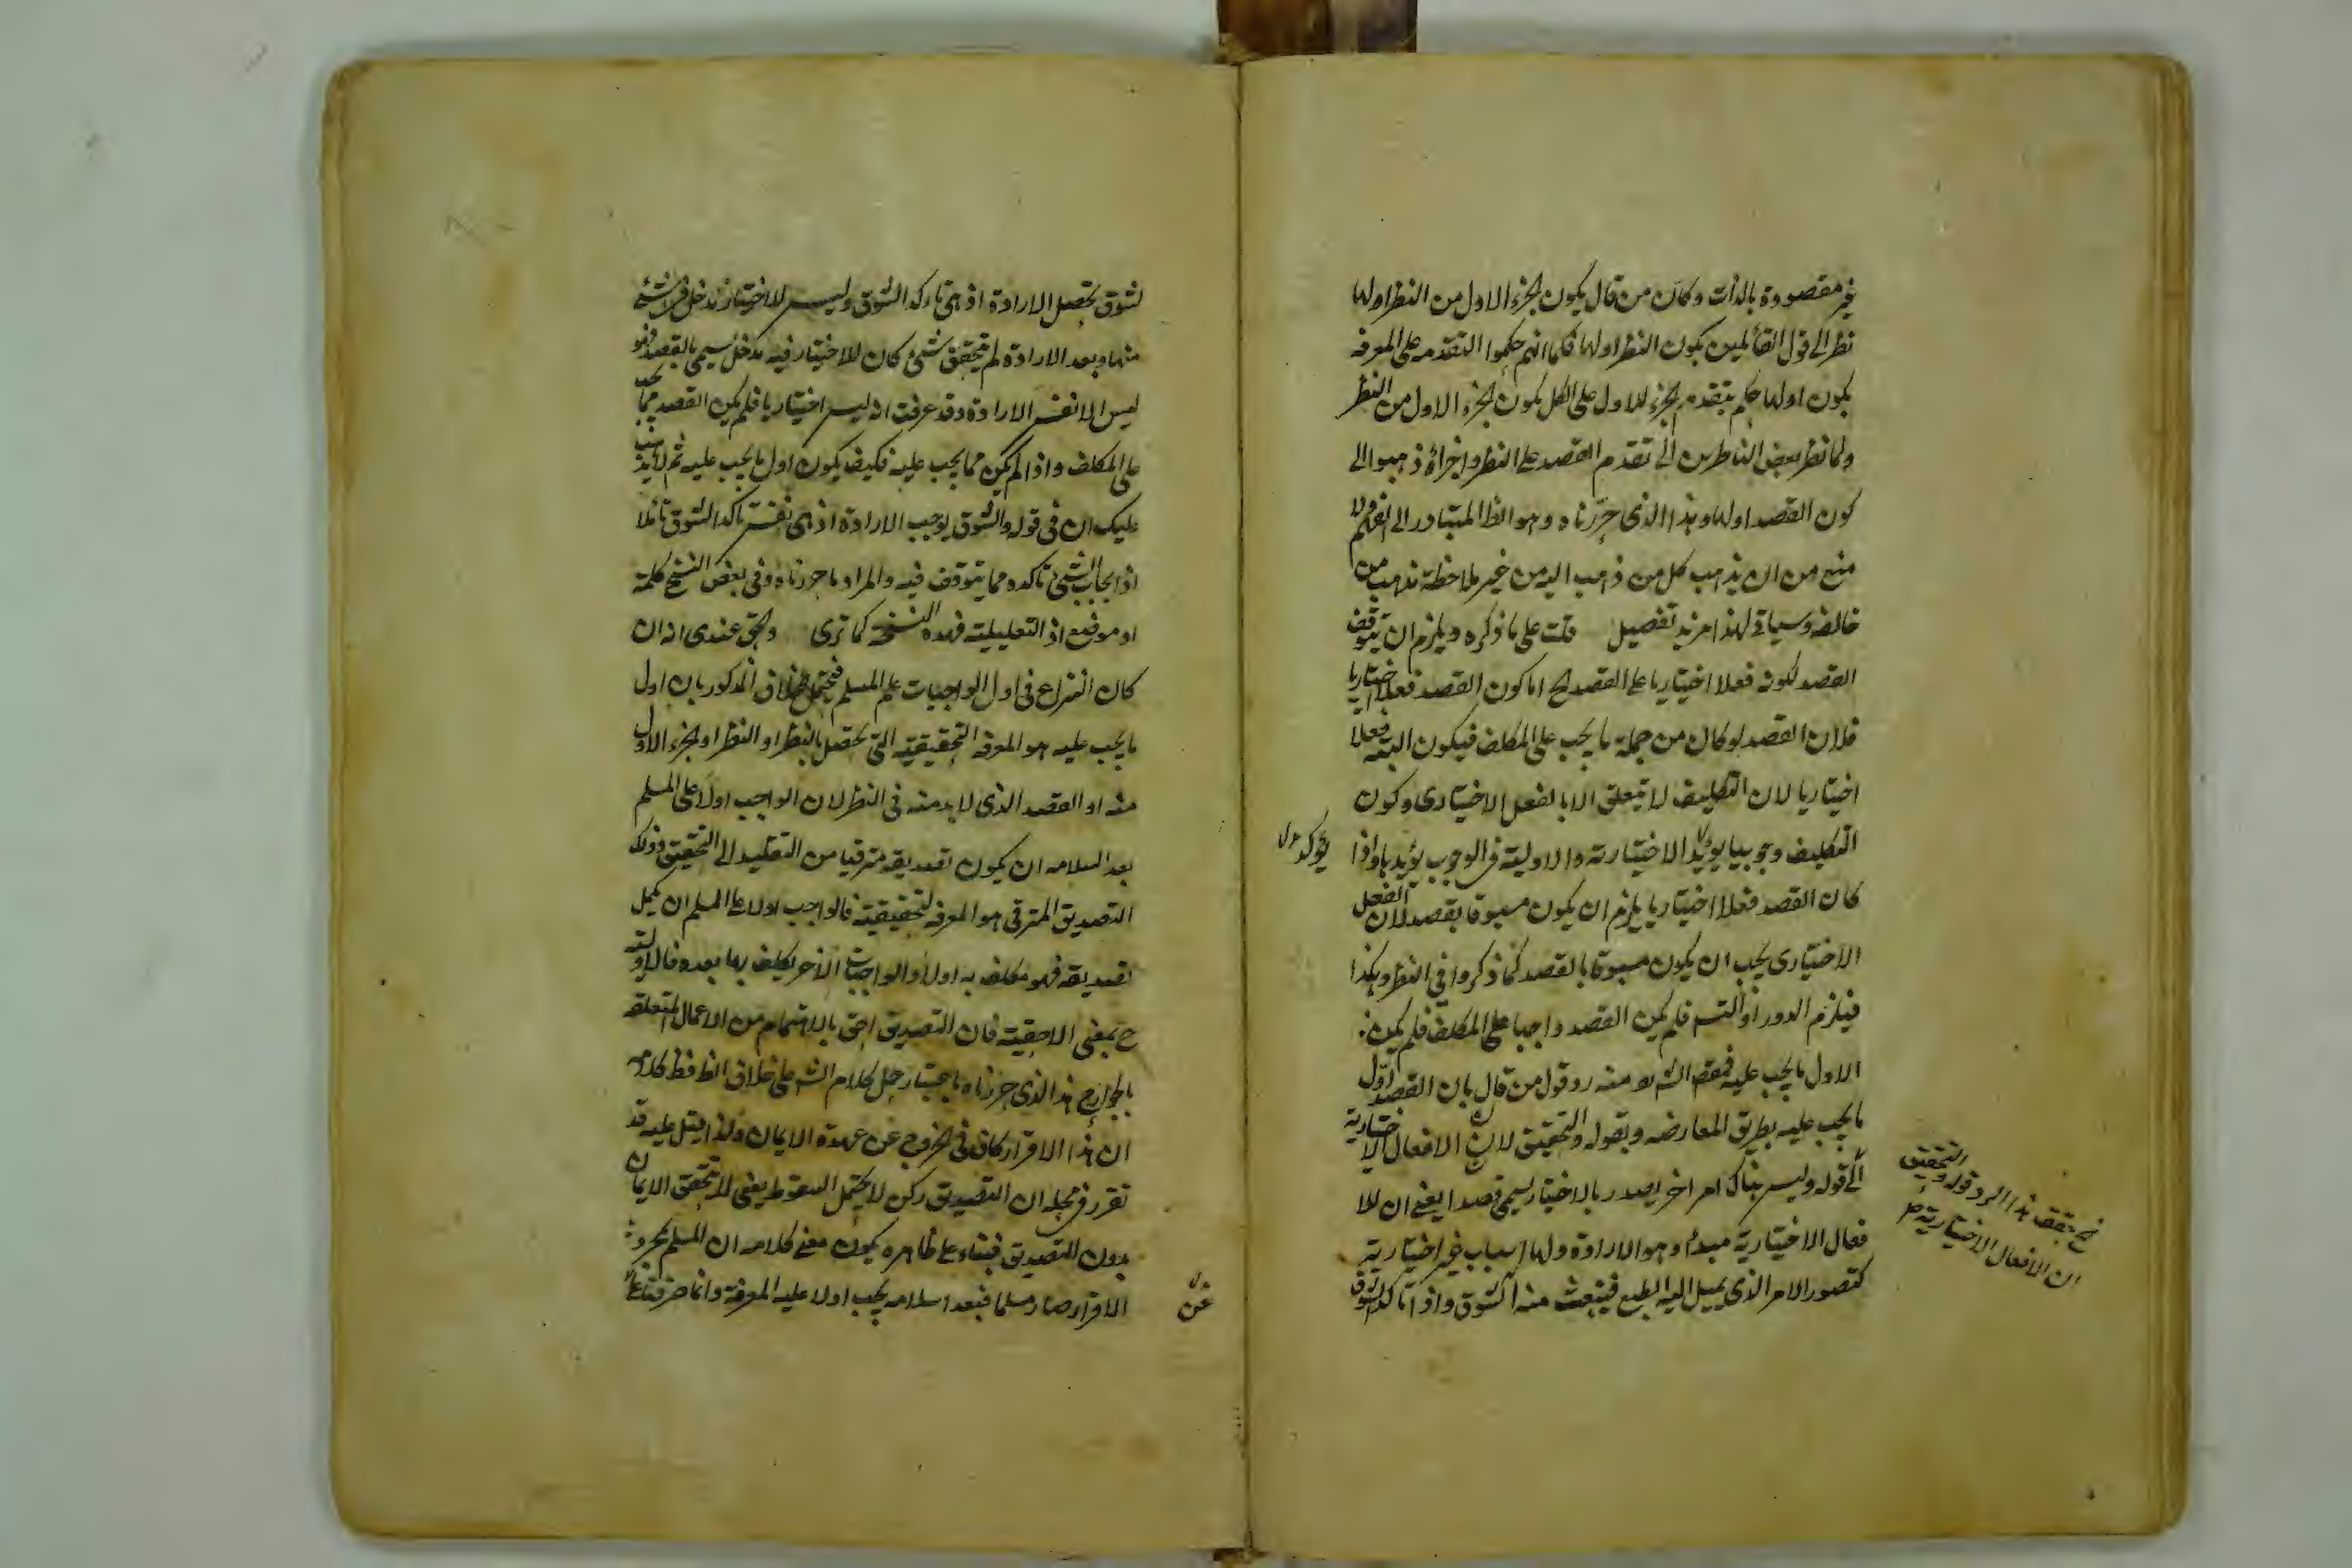 غير مقصودة بالذات وكان من قال يكون الجزء الاول من النظر اولها
نظر الى قول القائلين بكون النظر اولها فكما انهم حكموا التقدمه على المعرفة
بكون اولها حكم بتقدم الجزء الاول على الكل بكون الجزء الاول من النظر
ولما نظر بعض الناظرين الى تقدم القصد على النظر واجزائه ذهبوا الى
كون القصد اولها وهذا الذى حررناه وهو الظ المتبادر الى الفهم ولا
منع من ان يذهب كل من ذهب اليه من غير ملاحظة مذهب من
خالفه وسياتى لهذا مزيد تفصيل قلت على ما ذكره ويلزم ان يتوقف
القصد لكونه فعلا اختياريا على القصد لح اما كون القصد فعلا اختياريا
فلان القصد لو كان من جملة ما يجب على المكلف فيكون البتة فعلا
اختياريا لان التكليف لا يتعلق الا بالفعل الاختيارى وكون
التكليف وجوبيا يؤيد الاختيارية والاولية فى الوجوب يؤيدها واذا
يؤكد
كان القصد فعلا اختياريا يلزم ان يكون مسبوقا بقصد لان الفعل
الاختيارى يجب ان يكون مسبوقا بالقصد كما ذكروا فى النظر وهكذا
فيلزم الدور او التس فلم يكن القصد واجبا على المكلف فلم يكن
الاول ما يجب عليه فمقصد الشه منه رد قول من قال بان القصد اول
ما يجب عليه بطريق المعارضه وبقوله والتحقيق لان الافعال الاختيارية
الى قوله وليس هناك امر اخر يصدر بالاختيار يسمى قصدا يعنى ان للا
فعال الاختيارية مبدأ وهو الارادة ولها اسباب غير اختيارية
كتصور الامر الذى يميل اليه الطبع فينبعث منه الشوق واذا تأكد الشوق
هذا الرد قوله والتحقيق
ان الافعال الاختيارية
لشوق تحصل الارادة اذ هى تأكد الشوق وليس للاختيار مدخل فى شئ
منها وبعد الارادة لم يتحقق شئ كان للاختيار فيه مدخل يسمى بالقصد فهو
ليس الا نفس الارادة وقد عرفت انه ليس اختياريا فلم يكن القصد مما يجب
على المكلف واذا لم يكن مما يجب عليه فكيف يكون اول ما يجب عليه ثم لا يذهب
عليك ان فى قوله والشوق يوجب الارادة اذ هى نفس تأكد الشوق تأملا
اذ ايجاب الشئ تأكده مما يتوقف فيه والمراد ما حررناه وفى بعض النسخ كلمة
او موضع اذ التعليلية فهذه النسخة كما ترى والحق عندى انه ان
كان النزاع فى اول الواجبات على المسلم فيحتمل الخلاف المذكور بان اول
ما يجب عليه هو المعرفة التحقيقية التى تحصل بالنظر او النظر او الجزء الاول
منه او القصد الذى لا بد منه فى النظر لان الواجب اولا على المسلم
بعد اسلامه ان يكون تصديقه مترقيا من التقليد الى التحقيق وذلك
التصديق المترقى هو المعرفة التحقيقية فالواجب اولا على المسلم ان يكمل
تصديقه فهو مكلف به اولا والواجبات الاخر يكلف بها بعده فالاولية
ح بمعنى الاحقية فان التصديق احق بالاهتمام من الاعمال المتعلقة
بالجوارح هذا الذى حررناه باعتبار حمل كلام الشه على خلاف الظ فظ كلامه
ان هذا الاقرار كاف فى الخروج عن عهدة الايمان ولذا قيل عليه قد
تقرر فى محله ان التصديق ركن لا يحتمل السقوط يعنى لا يتحقق الايمان
بدون التصديق فبناء على ظاهره يكون معنى كلامه ان المسلم بمجرد
الاقرار صار مسلما فبعد اسلامه يجب اولا عليه المعرفة وانما صرفنا
عن